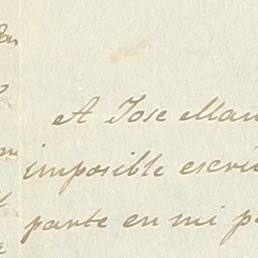 A Jose Man
imposible escri
parte en mi p